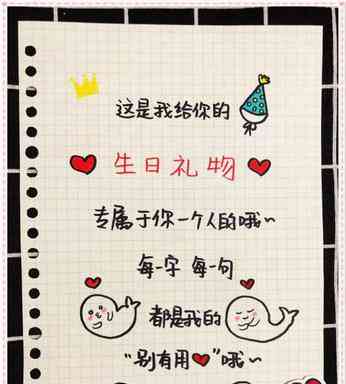 这是我给你的
生日礼物
专属于你一个人的哦~
每一字 每一句
都是我的
“别有用❤”哦~